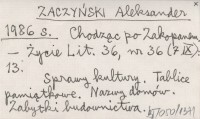 ZACZYŃSKI Aleksander
1986 s. Chodząc po Zakopanem.
– Życie Lit. 36, nr 36 (7 IX):
13.
Sprawy kultury. Tablice
pamiątkowe. Nazwy domów.
Zabytki budownictwa.